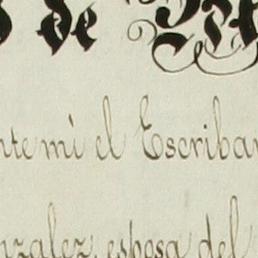 de
nte mi el Escriban
nzalez, esposa del